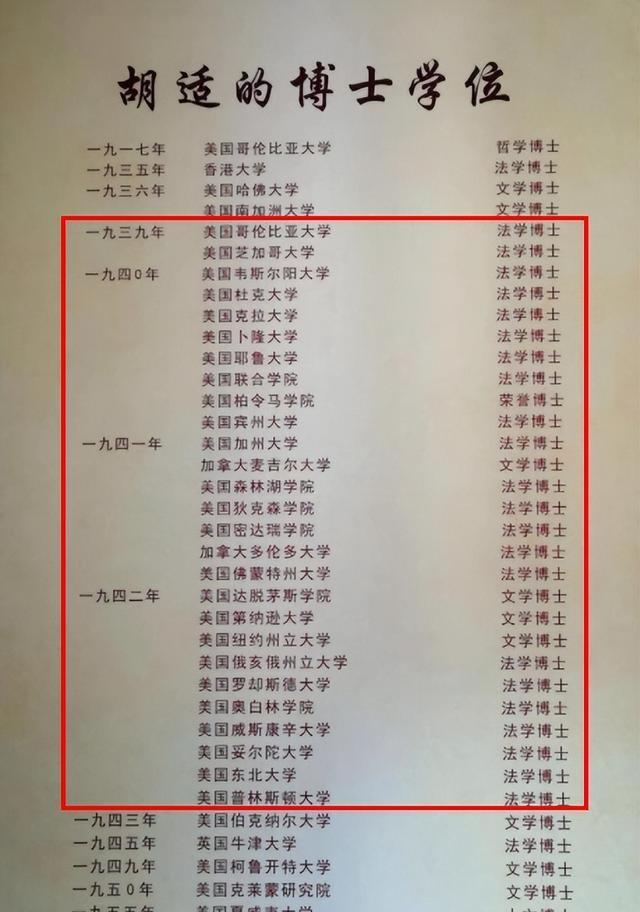 胡适的博士学位
一九一七年 美国哥伦比亚大学 哲学博士
一九三五年 香港大学 法学博士
一九三六年 美国哈佛大学 文学博士
美国南加洲大学 文学博士
一九三九年 美国哥伦比亚大学 法学博士
美国芝加哥大学 法学博士
一九四0年 美国韦斯尔阳大学 法学博士
美国杜克大学 法学博士
美国克拉大学 法学博士
美国卜隆大学 法学博士
美国耶鲁大学 法学博士
美国联合学院 法学博士
美国柏令马学院 荣誉博士
美国宾州大学 法学博士
一九四一年 美国加州大学 法学博士
加拿大麦吉尔大学 文学博士
美国森林湖学院 法学博士
美国狄克森学院 法学博士
美国密达瑞学院 法学博士
加拿大多伦多大学 法学博士
美国佛蒙特州大学 法学博士
一九四二年 美国达脱茅斯学院 文学博士
美国第纳逊大学 文学博士
美国纽约州立大学 文学博士
美国俄亥俄州立大学 法学博士
美国罗却斯德大学 法学博士
美国奥白林学院 法学博士
美国威斯康辛大学 法学博士
美国妥尔陀大学 法学博士
美国东北大学 法学博士
美国普林斯顿大学 法学博士
一九四三年 美国伯克纳尔大学 文学博士
一九四五年 英国牛津大学 法学博士
一九四九年 美国柯鲁开特大学 文学博士
一九五0年 美国克莱蒙研究院 文学博士